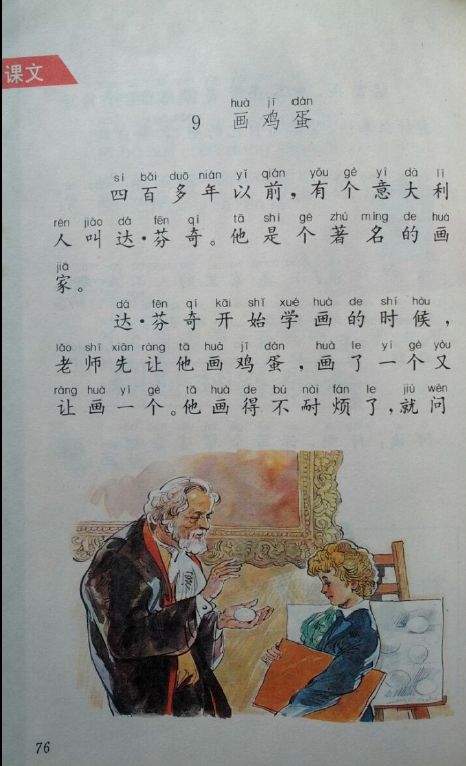 课文
huà jī dàn
9 画鸡蛋
sì bǎi duō nián yǐ qián yǒu gè yì dà lì
四百多年以前，有个意大利
rén jiào dá fēn qí tā shì gè zhù míng de huà
人叫达·芬奇。他是个著名的画
jiā
家。
dá fēn qí kāi shǐ xué huà de shí hòu
达·芬奇开始学画的时候，
lǎo shī xiān ràng tā huà jī dàn huà le yí gè yòu
老师先让他画鸡蛋，画了一个又
ràng huà yí gè tā huà de bú nài fán le jiù wèn
让画一个。他画得不耐烦了，就问
76